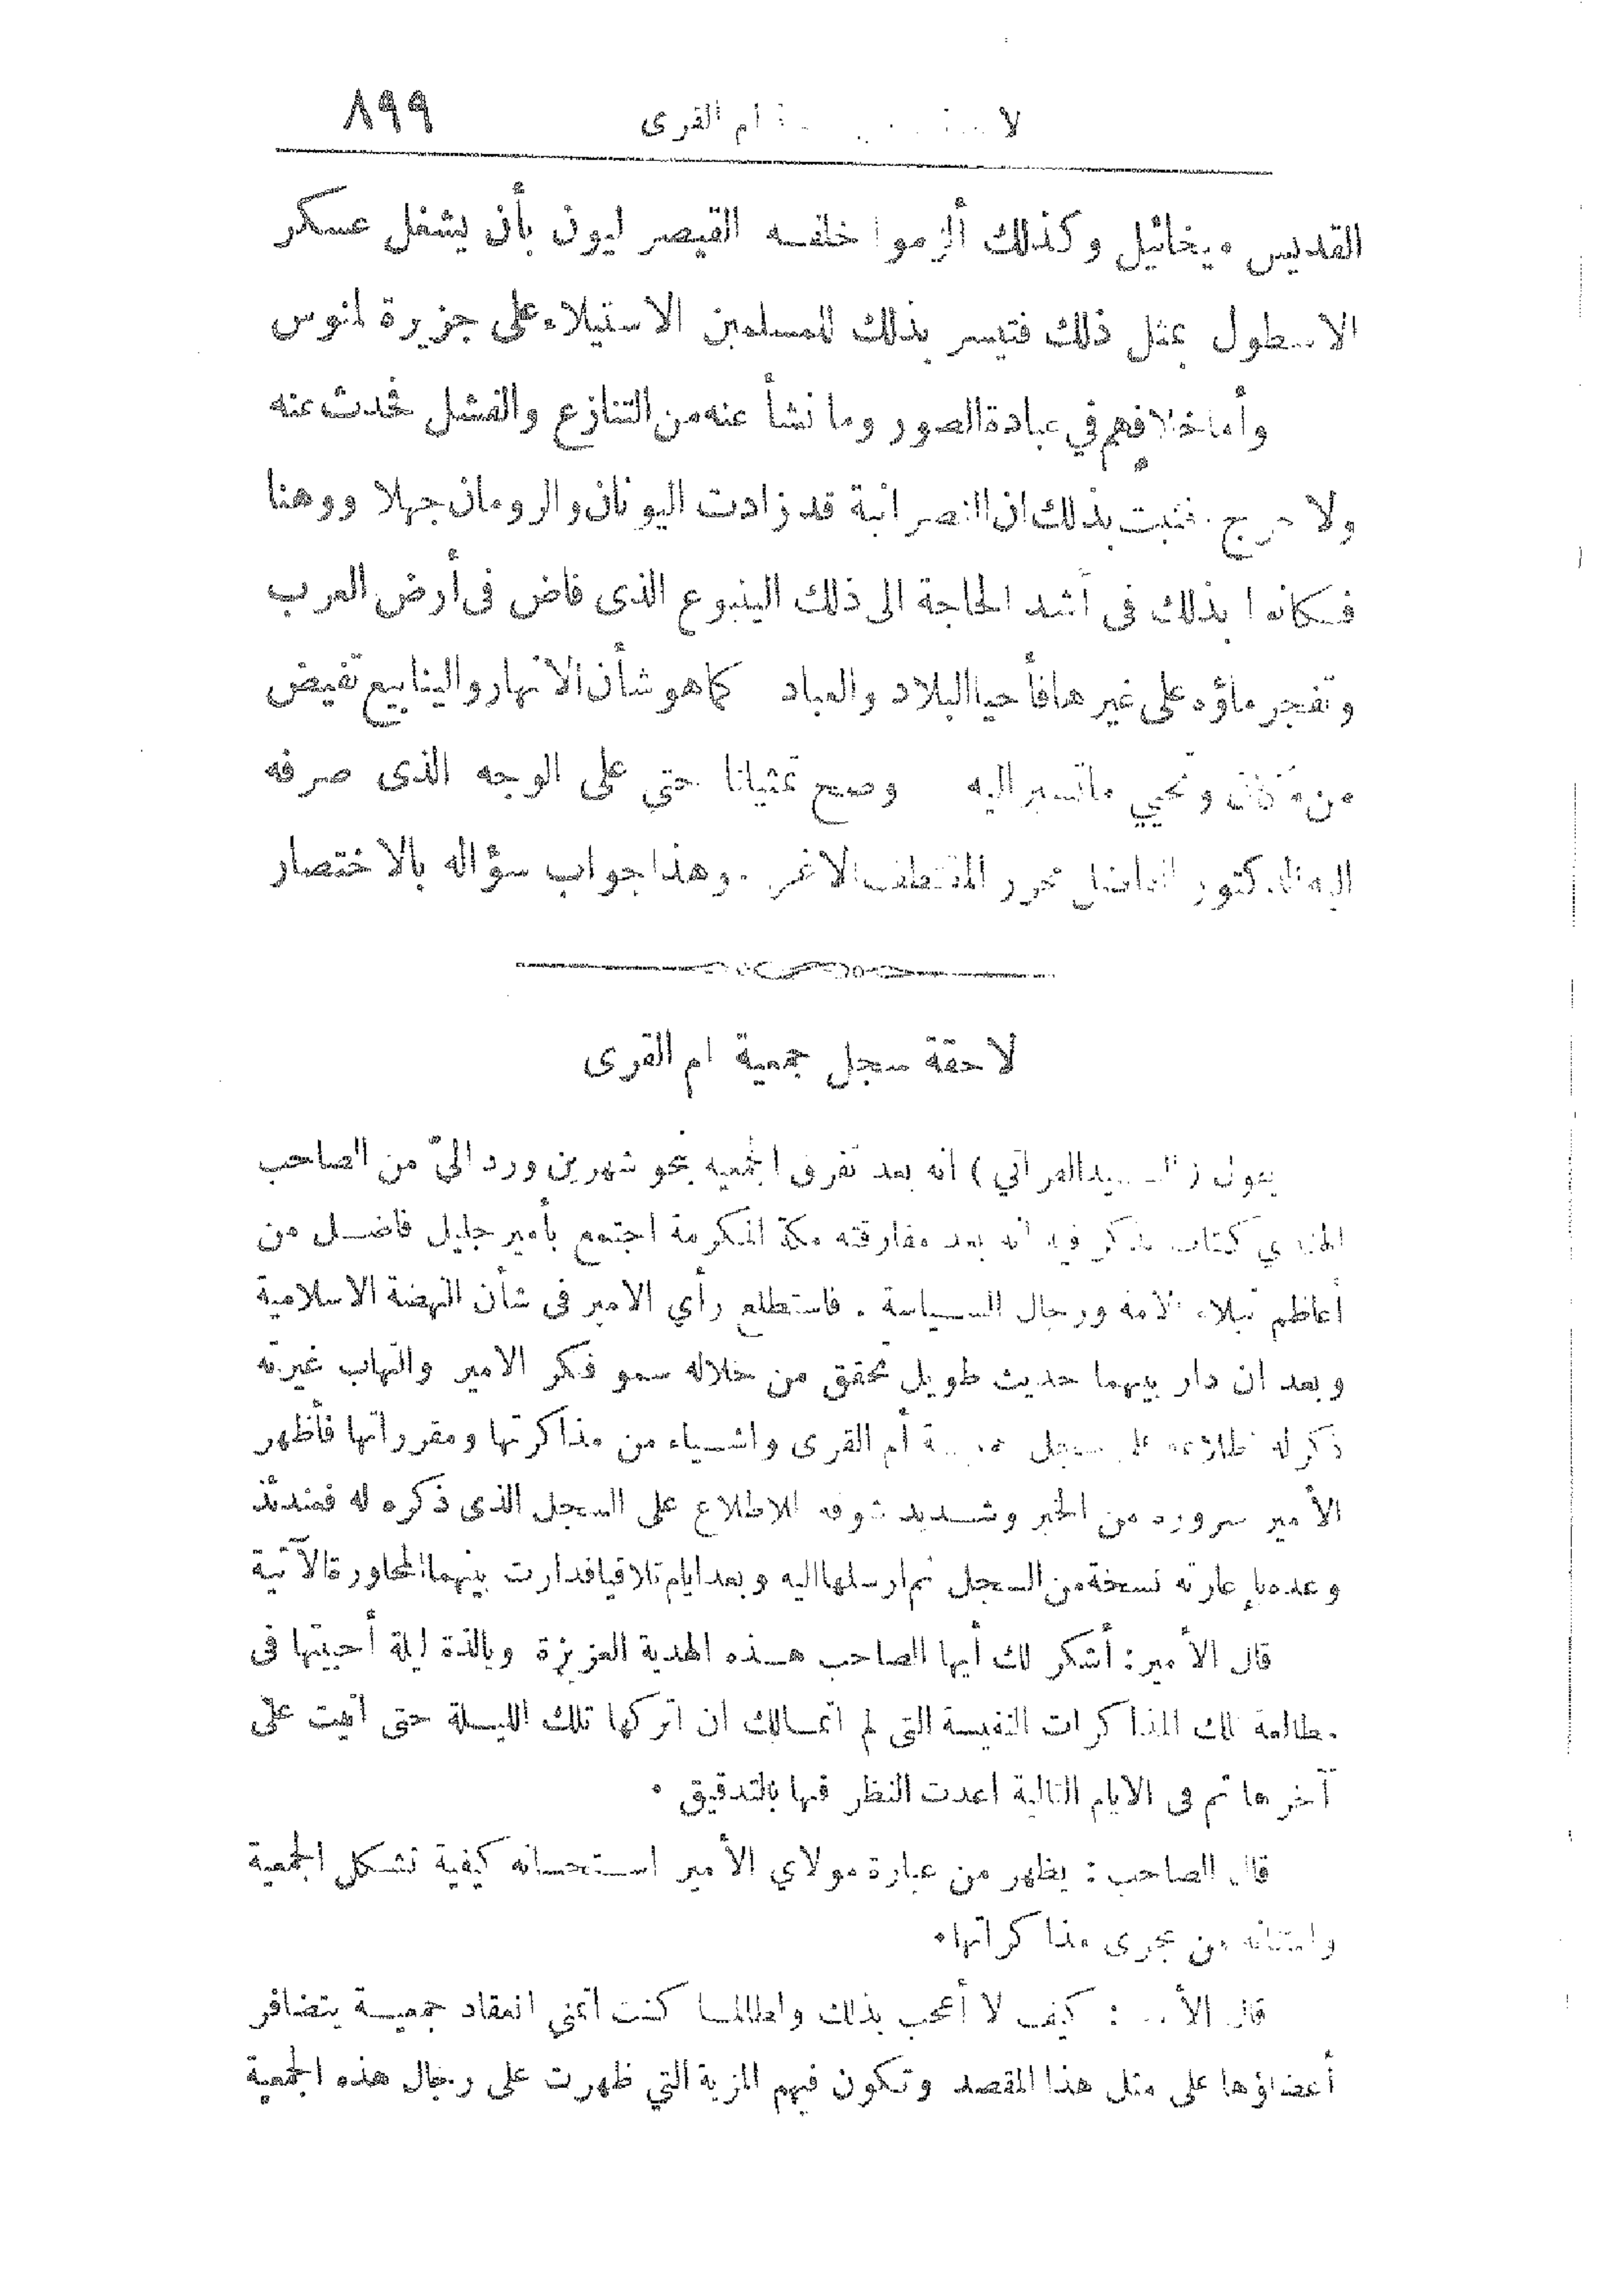 أم القرى ٨٩٩
القديس ميخائيل وكذلك ألزموا خلفه القيصر ليون بأن يشغل عسكر
الاسطول بمثل ذلك فتيسر بذلك للمسلمين الاستيلاء على جزيرة لمنوس
وأما خلافهم في عبادة الصور وما نشأ عنه من التنازع والفشل فحدث عنه
ولا حرج . فثبت بذلك ان النصرانية قد زادت اليونان والرومان جهلا ووهنا
فكانوا بذلك في أشد الحاجة الى ذلك الينبوع الذى فاض فى أرض العرب
وتفجر ماؤه على غيرها فأحيا البلاد والعباد كما هو شأن الانهار والينابيع تفيض
من مكان وتحيي ما تسير اليه وصح تمثيلنا حتي على الوجه الذى صرفه
اليه الدكتور الفاضل محرر المقتطف الاغر . وهذا جواب سؤاله بالاختصار
لاحقة سجل جمعية ام القرى
يقول (السيد الفراتي) انه بعد تفرق الجمعية بنحو شهرين ورد اليّ من الصاحب
الهندي كتاب يذكر فيه انه بعد مفارقته مكة المكرمة اجتمع بأمير جليل فاضل من
أعاظم نبلاء الامة ورجال السياسة . فاستطلع رأي الامير فى شأن النهضة الاسلامية
وبعد ان دار بينهما حديث طويل تحقق من خلاله سمو فكر الامير والتهاب غيرته
ذكر له اطلاعه على سجل جمعية أم القرى واشياء من مذاكرتها ومقرراتها فأظهر
الأمير سروره من الخبر وشديد شوقه للاطلاع على السجل الذى ذكره له فعندئذ
وعده بإعارته نسخة من السجل ثم ارسلها اليه وبعد ايام تلاقيا فدارت بينهما المحاورة الآتية
قال الأمير: أشكر لك أيها الصاحب هذه الهدية العزيزة ويالذة ليلة أحييتها فى
مطالعة تلك المذاكرات النفيسة التى لم اتمالك ان اتركها تلك الليلة حتى اتيت على
آخرها ثم فى الايام التالية اعدت النظر فيها بالتدقيق .
قال الصاحب : يظهر من عبارة مولاي الأمير استحسانه كيفية تشكل الجمعية
وامتنانه من مجرى مذاكراتها .
قال الأمير : كيف لا أعجب بذلك ولطالما كنت اتمنى انعقاد جمعية يتضافر
أعضاؤها على مثل هذا المقصد وتكون فيهم المزية التي ظهرت على رجال هذه الجمعية